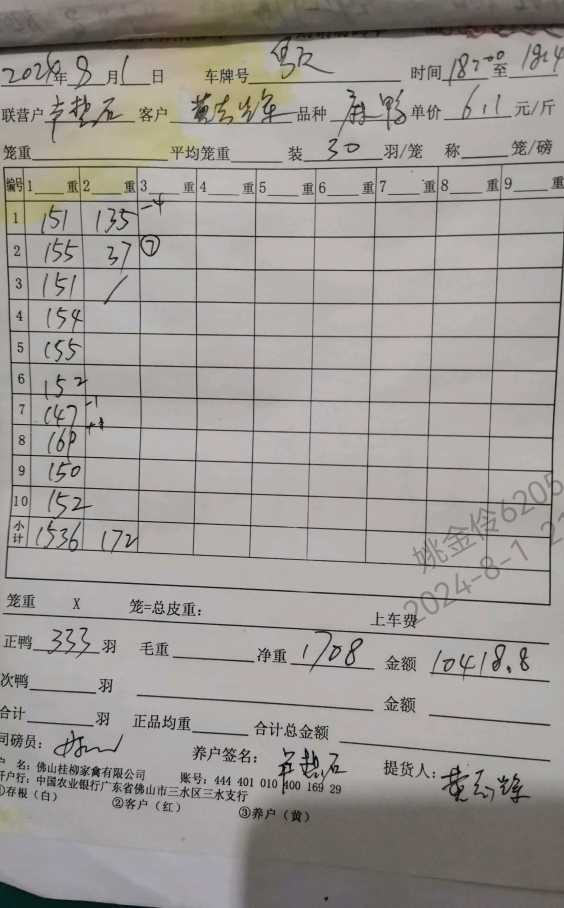 2024年8月1日 车牌号 时间18:00至18:4
联营户 客户 品种麻鸭 单价6.1元/斤
笼重 平均笼重 装30羽/笼 称 笼/磅
编号 1 重 2 重 3 重 4 重 5 重 6 重 7 重 8 重 9 重
1 151 135 -4
2 155 37 ⑦
3 151 /
4 154
5 155
6 152
7 147 -1
8 169
9 150
10 152
小计 1536 172
姚金伶6205
2024-8-1 2
笼重 X 笼=总皮重: 上车费
正鸭333羽 毛重 净重1708 金额10418.8
次鸭 羽 金额
合计 羽 正品均重 合计总金额
司磅员: 养户签名: 提货人:
户 名: 佛山桂柳家禽有限公司 账号: 444 401 010 400 169 29
开户行: 中国农业银行广东省佛山市三水区三水支行
①存根(白) ②客户(红) ③养户(黄)